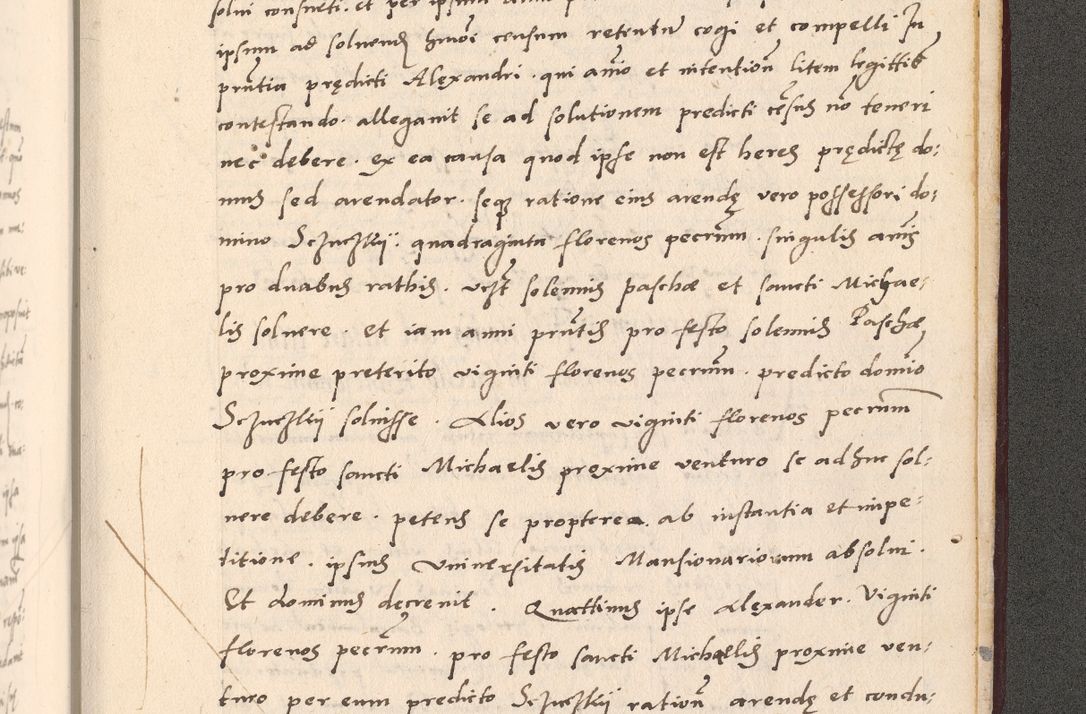 solui consueti. et per ipsum
ipsum ad soluend hmoi censum retentum cogi et compelli In
pntia prędicti Alęxandri. qui aīo et intention litem legittīe
contestando. allegauit se ad solutionem predicti cēsus nō teneri
nec debere. ex ea causa quod ipse non est heres prędictę do:
mus sed arendator. seqz ratione eius arendę vero possessori do:
mino Sczuczkÿ. quadraginta florenos pecūm. singulis anīs
pro duabus rathis. vczt solemnis paschæ et sancti Michae:
lis soluere. et iam anni pntis pro festo solemnis Paschæ
proxime preterito viginti florenos pecūm. predicto domīo
Sczuczkÿ soluisse. Alios vero viginti florenos pecunīm
pro festo sancti Michaelis proxime venturo se adhuc sol:
uere debere. petens se propterea ab instantia et impe:
titione. ipsius Vniuersitatis Mansionariorum absolui.
Et dominus decreuit. Quattinus ipse Alęxander. Viginti
florenos pecūm. pro festo sancti Michaelis proxime ven:
turo per eum predicto Sczuczkÿ ration arendę et condu: